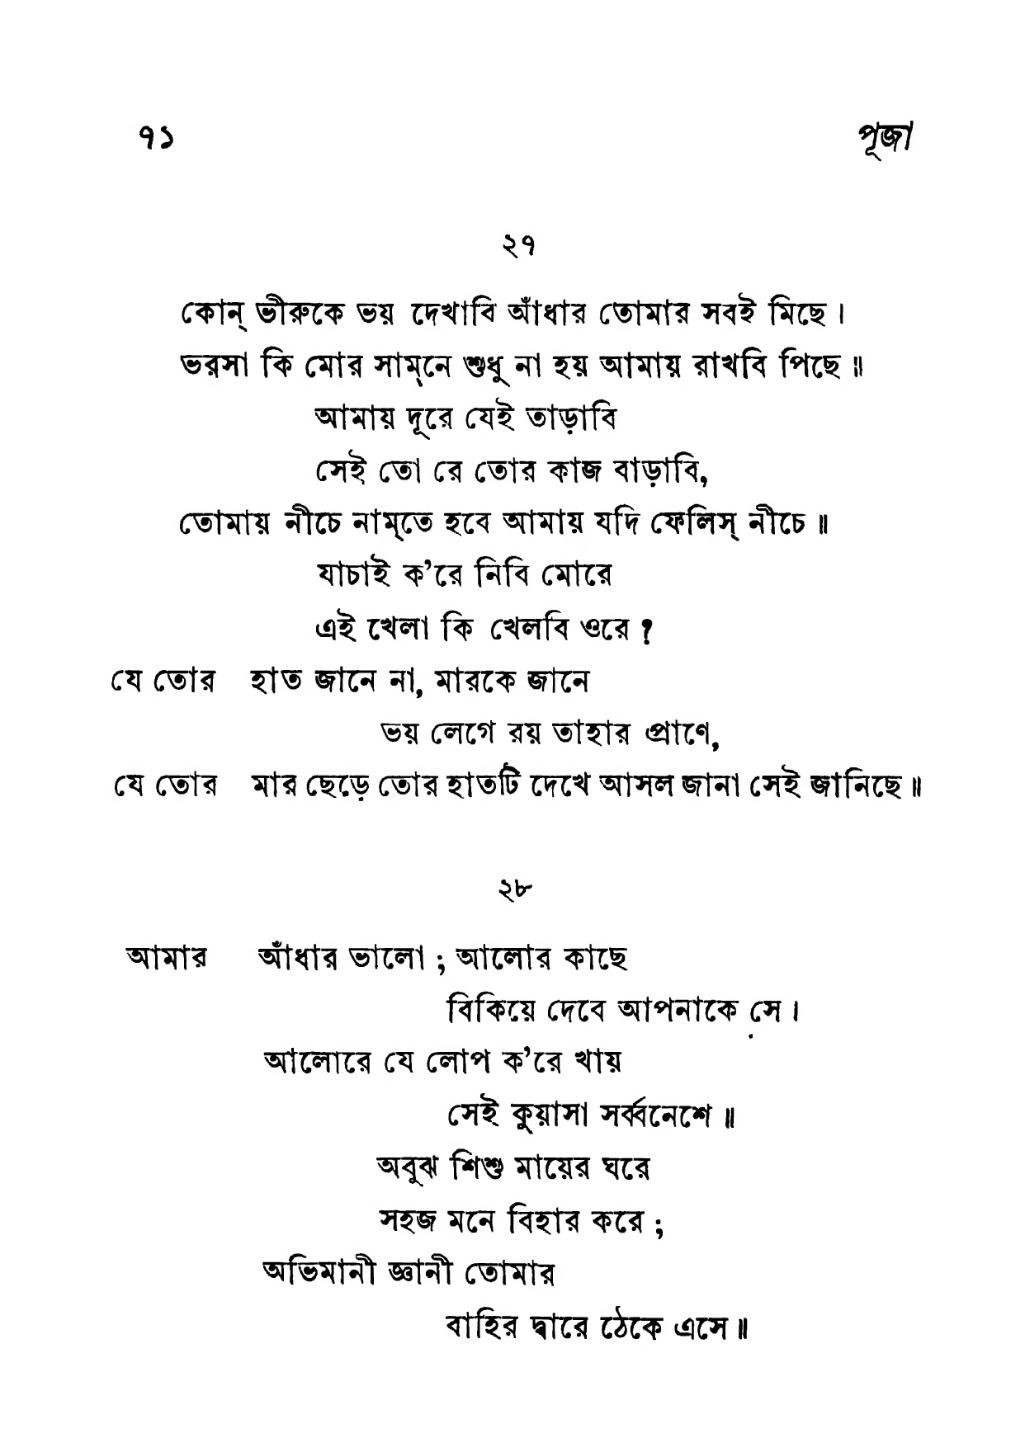 ৭১ পূজা
২৭
কোন্ ভীরুকে ভয় দেখাবি আঁধার তোমার সবই মিছে।
ভরসা কি মোর সাম্‌নে শুধু না হয় আমায় রাখবি পিছে॥
আমায় দূরে যেই তাড়াবি
সেই তো রে তোর কাজ বাড়াবি,
তোমায় নীচে নাম্‌তে হবে আমায় যদি ফেলিস্ নীচে॥
যাচাই ক’রে নিবি মোরে
এই খেলা কি খেলবি ওরে ?
যে তোর হাত জানে না, মারকে জানে
ভয় লেগে রয় তাহার প্রাণে,
যে তোর মার ছেড়ে তোর হাতটি দেখে আসল জানা সেই জানিছে॥
২৮
আমার আঁধার ভালো ; আলোর কাছে
বিকিয়ে দেবে আপনাকে সে।
আলোরে যে লোপ ক’রে খায়
সেই কুয়াসা সর্ব্বনেশে॥
অবুঝ শিশু মায়ের ঘরে
সহজ মনে বিহার করে ;
অভিমানী জ্ঞানী তোমার
বাহির দ্বারে ঠেকে এসে॥